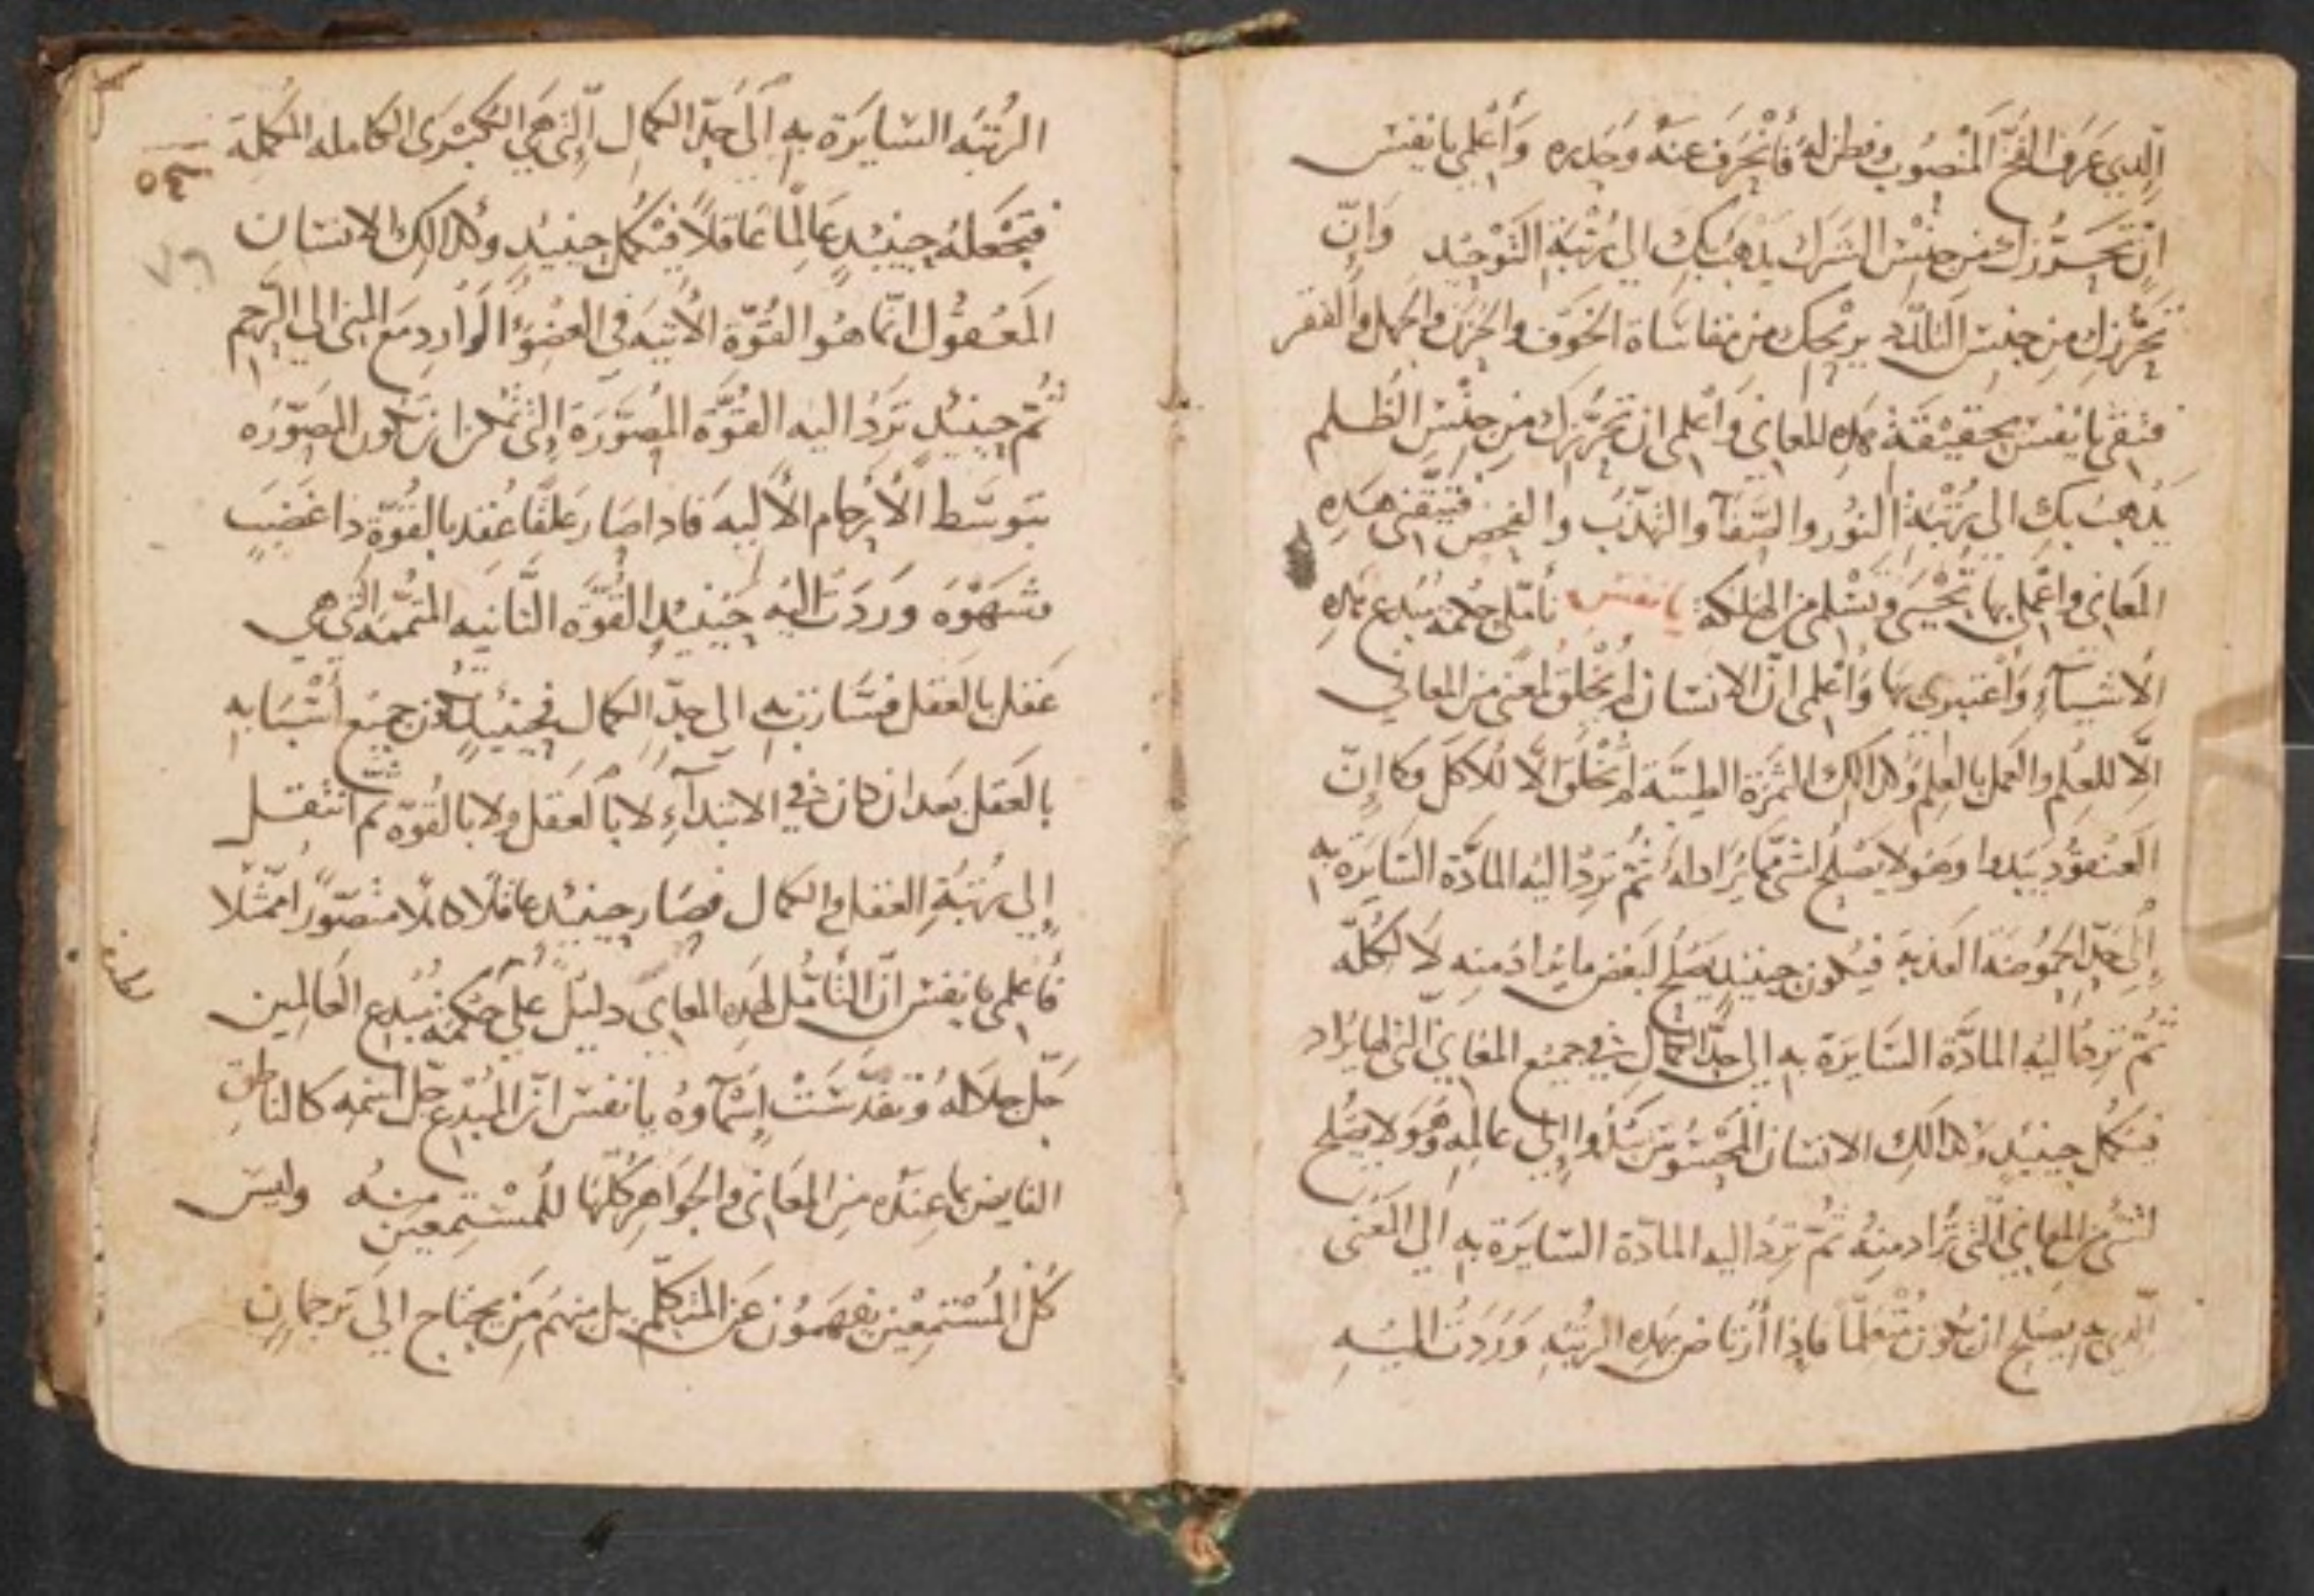 الذي عرف الفخ المنصوب وفطن له فانحرف عنه وحذره واعلمي يا نفس
ان تحرزك من جنس الشرك يذهب بك الي رتبة التوحيد وان
تحرزك من جنس التلذذ يريحك من مقاساة الخوف والحزن والجهل والفقر
فثقي يا نفس بحقيقة هذه المعاني واعلمي ان تحرزك من جنس الظلم
يذهب بك الى رتبة النور والصفآ والتهذب والفحص فتيقني هذه
المعاني واعملي بها تحيي وتسلمي من الهلكة يا نفس تأملي حكمة مبدع هذه
الاشيآء واعتبري بها واعلمي ان الانسان لم يخلق لمعني من المعاني
الا للعلم والعمل بالعلم وكذالك الثمرة الطيبة لم تخلق الا للاكل وكما ان
العنقود يبدوا وهو لا يصلح لشي مما يراد له ثم ترد اليه المادة السايرة به
إلى حد الحموضة العذبة فيكون حينيذ يصلح لبعض ما يراد منه لا لكله
ثم ترد اليه المادة السايرة به الي حد الكمال في جميع المعاني التي لها يراد
فيكمل حينيذ وكذالك الانسان المحسوس يبدوا إلى عالمه وهو لا يصلح
لشي من المعاني التي تراد منه ثم ترد اليه المادة السايرة به الي المعنى
الذي به يصلح ان يكون متعلما فاذا ارتاض بهذه الرتبه وردت اليه
٤٥
الرتبه السايرة به الى حد الكمال التي هي الكبرى الكامله المكملة
فتجعله حينيذ عالما عاقلا فيكمل حينيذ وكذالك الانسان
المعقول انما هو القوة الاتيه في العضو الوارد مع المني الي الرحم
ثم حينيذ ترد اليه القوة المصورة التي تمكن ان تكون المصوره
بتوسط الارحام الاليه فاذا صار علقا عقد بالقوة ذا غضب
وشهوة ووردت اليه حينيذ القوه الثانيه المتممه التي هي
عقل بالعقل فسارت به الى حد الكمال فحينيذ تكون جميع أشيايه
بالعقل بعد ان كان في الابتدآء لا بالعقل ولا بالقوة ثم انتقل
إلى رتبة العقل والكمال فصار حينيذ عاقلا كاملا متصورا ممثلا
فاعلمي يا نفس ان التأمل لهذه المعاني دليل على حكمة مبدع العالمين
جل جلاله وتقدست اسمآوه يا نفس ان المبدع جل اسمه كالناطق
الفايض بما عنده من المعاني والجواهر كلها للمستمعين منه وليس
كل المستمعين يفهمون عن المتكلم بل منهم من يحتاج الى ترجمان